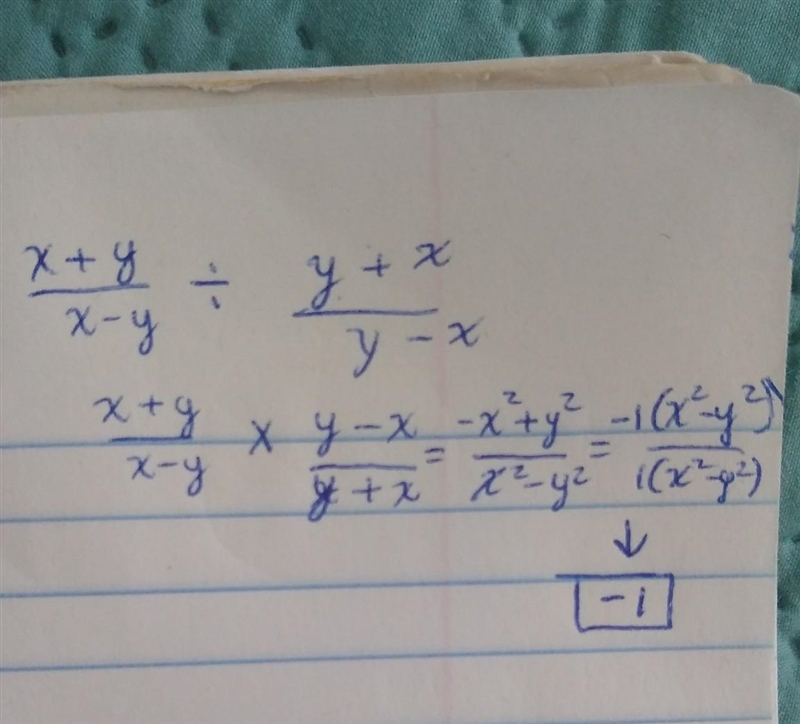 (x + y)/(x - y) ÷ (y + x)/(y - x)
(x + y)/(x - y) × (y - x)/(y + x) = (-x² + y²)/(x² - y²) = -1(x² - y²)/1(x² - y²)
↓
-1